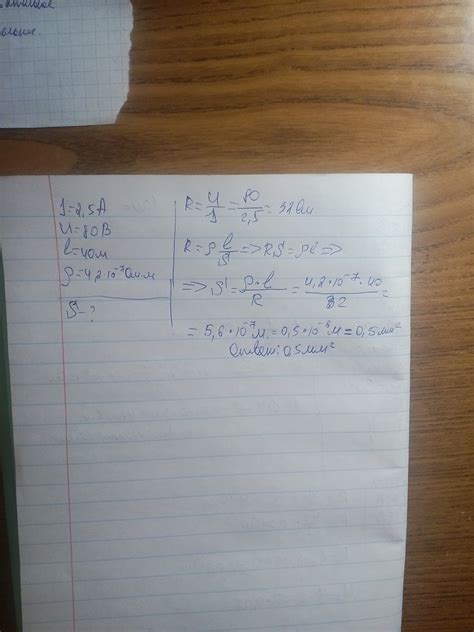 J=2,5A
U=80В
l=40м
ρ=4,2·10⁻⁷Ом·м
S-?
R=U/J=80/2,5=32Ом
R=ρ l/S =>RS=ρl=>
=>S=ρ·l/R=4,2·10⁻⁷·40/32=
=5,6·10⁻⁷м=0,5·10⁻⁶м=0,5мм²
Ответ:0,5мм²